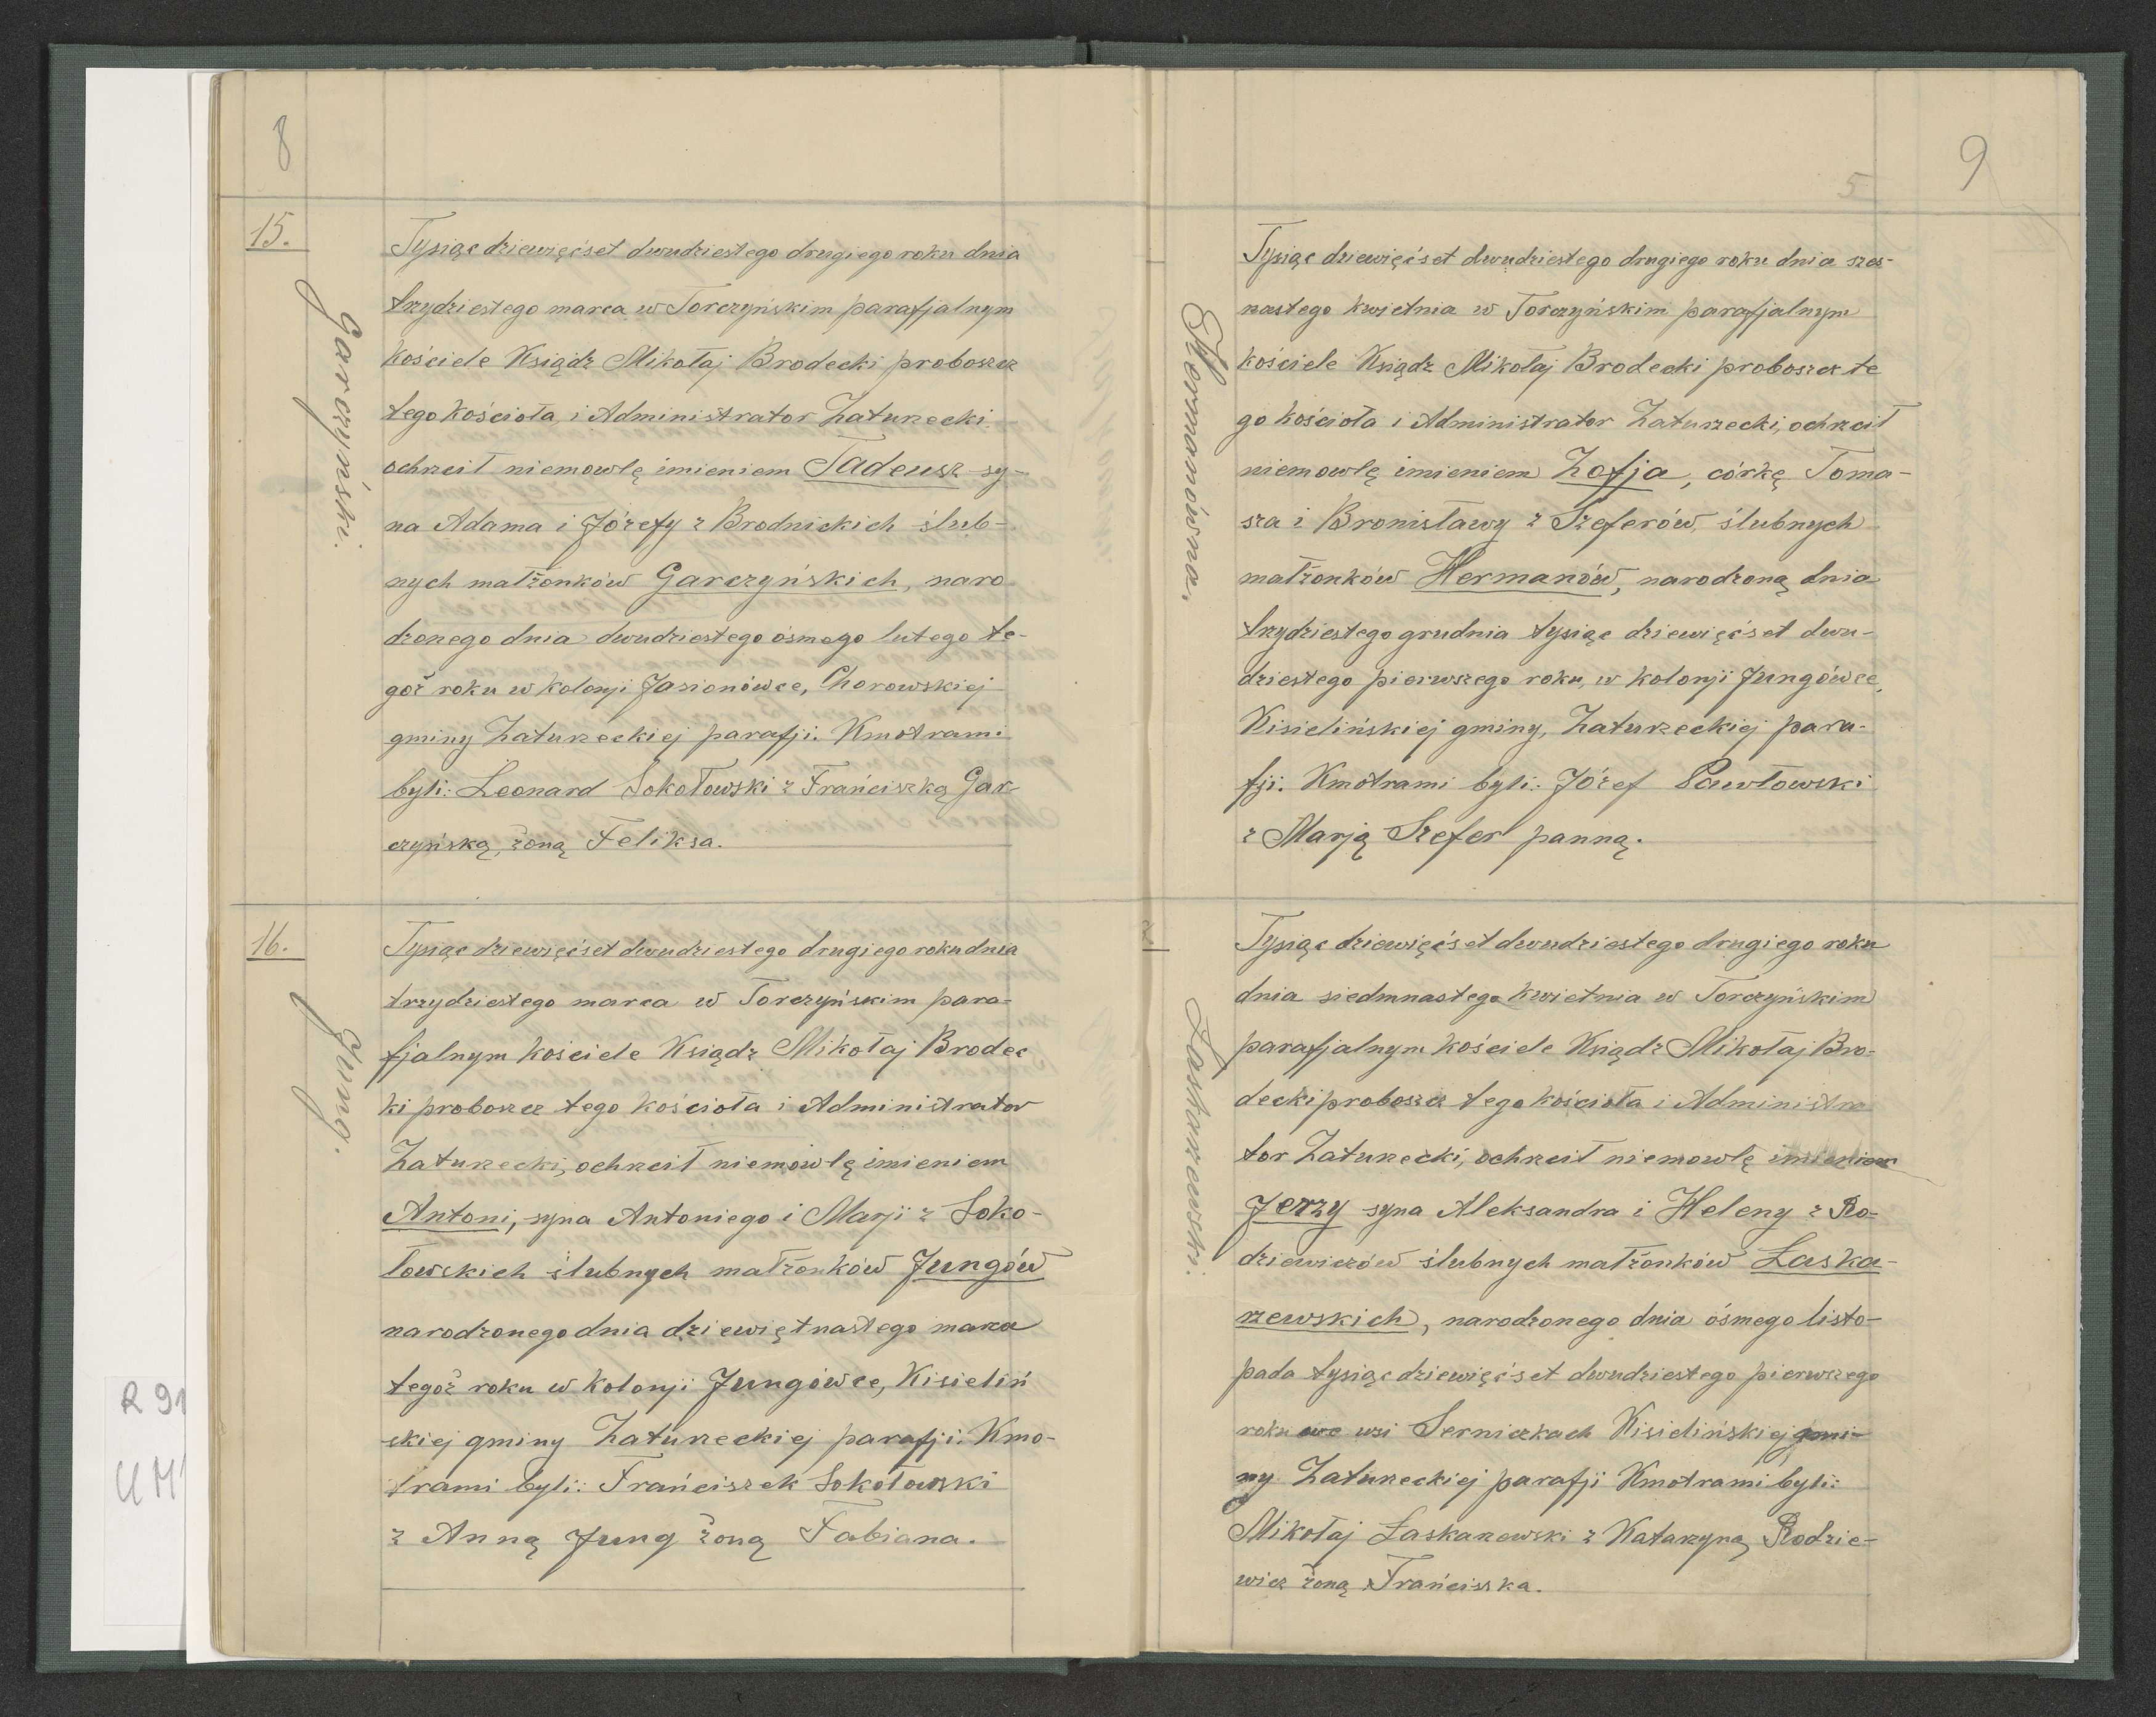 8
15.
Garczyński.
Tysiąc dziewięćset dwudziestego drugiego roku dnia
trzydziestego marca w Torczyńskim parafjalnym
kościele Ksiądz Mikołaj Brodecki proboszcz
tego kościoła i Administrator Zaturzecki
ochrzcił niemowlę imieniem Tadeusz sy-
na Adama i Józefy z Brodnickich ślub-
nych małżonków Garczyńskich, naro
dzonego dnia dwudziestego ósmego lutego te-
goż roku w kolonji Jasionówce, Chorowskiej
gminy Zaturzeckiej parafji. Kmotrami
byli: Leonard Sokołowski z Frańciszką Gar-
czyńską, żoną Feliksa.
16.
Jung.
Tysiąc dziewięćset dwudziestego drugiego roku dnia
trzydziestego marca w Torczyńskim para-
fjalnym kościele Ksiądz Mikołaj Brodec
ki proboszcz tego kościoła i Administrator
Zaturzecki, ochrzcił niemowlę imieniem
Antoni, syna Antoniego i Marji z Soko-
łowskich ślubnych małżonków Jungów
narodzonego dnia dziewiętnastego marca
tegoż roku w kolonji Jungówce, Kisieliń
skiej gminy Zaturzeckiej parafji. Kmo-
trami byli: Frańciszek Sokołowski
z Anną Jung żoną Fabiana.
R 91
UM
9
5
Hermanówna.
Tysiąc dziewięćset dwudziestego drugiego roku dnia szes-
nastego kwietnia w Torczyńskim parafjalnym
kościele Ksiądz Mikołaj Brodecki proboszcz te
go kościoła i Administrator Zaturzecki, ochrzcił
niemowlę imieniem Zofja, córkę Toma-
sza i Bronisławy z Szeferów, ślubnych
małżonków Hermanów, narodzoną dnia
trzydziestego grudnia tysiąc dziewięćset dwu-
dziestego pierwszego roku, w kolonji Jungówce,
Kisielińskiej gminy, Zaturzeckiej para-
fji. Kmotrami byli: Józef Pawłowski
z Marją Szefer panną.
Łaskarzewski.
Tysiąc dziewięćset dwudziestego drugiego roku
dnia siedmnastego kwietnia w Torczyńskim
parafjalnym kościele Ksiądz Mikołaj Bro-
decki proboszcz tego kościoła i Administra
tor Zaturzecki, ochrzcił niemowlę imieniem
Jerzy syna Aleksandra i Heleny z Ro-
dziewiczów ślubnych małżonków Łaska-
rzewskich, narodzonego dnia ósmego listo-
pada tysiąc dziewięćset dwudziestego pierwszego
roku we wsi Serniczkach Kisielińskiej gmi-
ny Zaturzeckiej parafji Kmotrami byli:
Mikołaj Łaskarzewski z Katarzyną Rodzie-
wicz żoną Frańciszka.